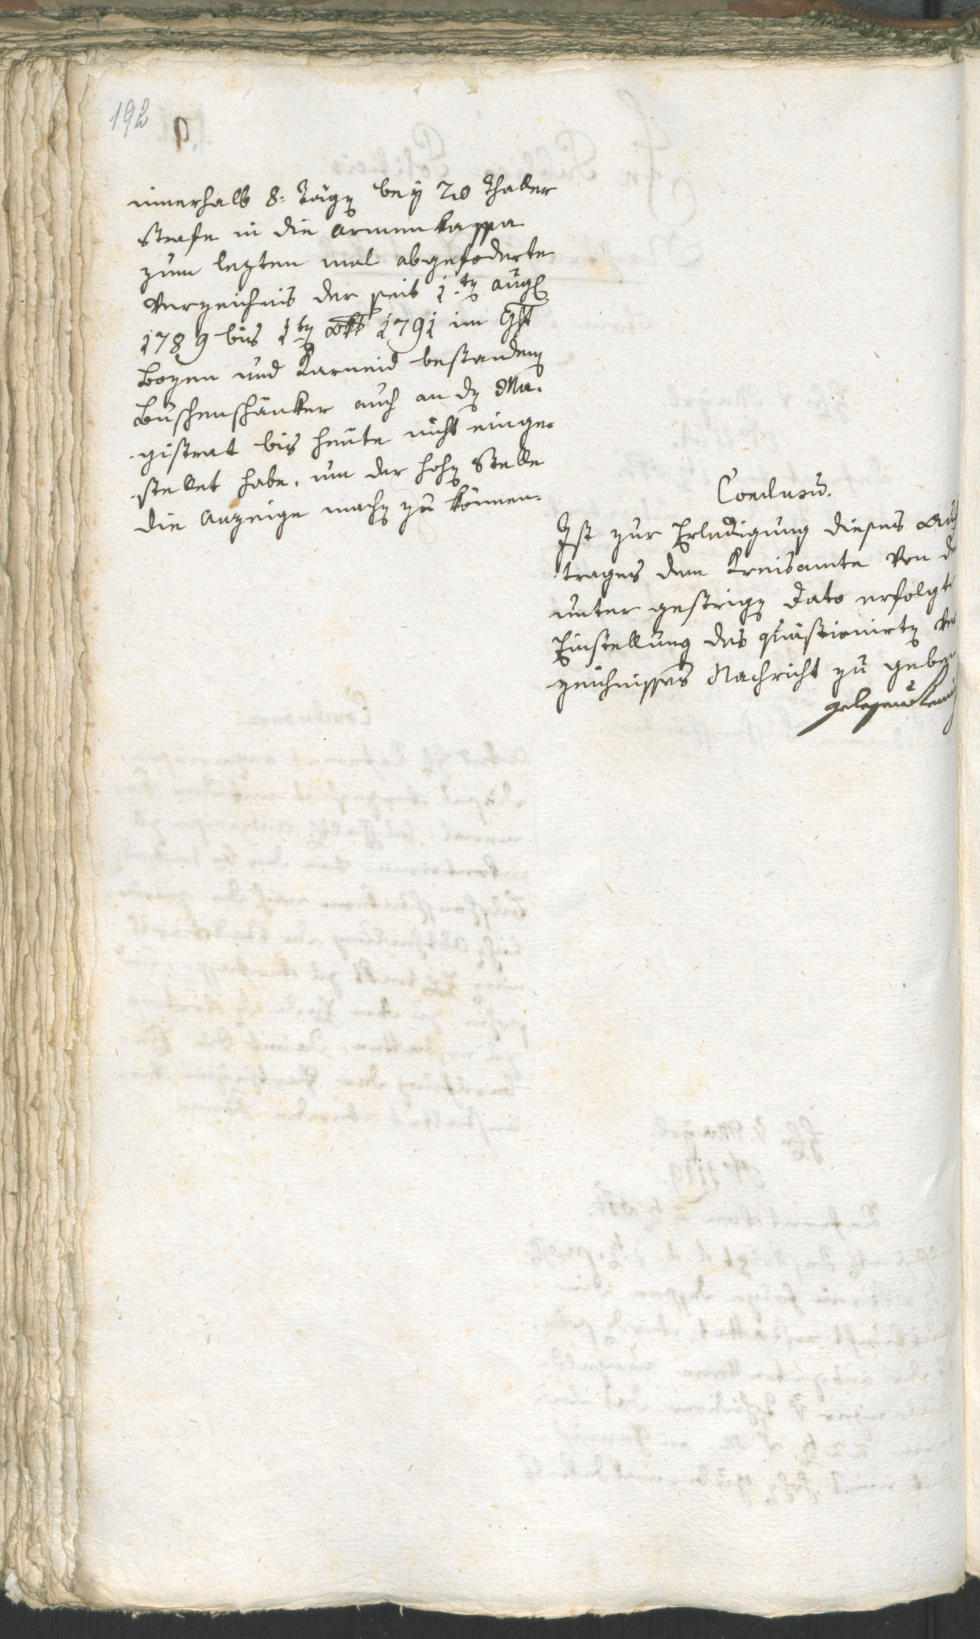 192
P.
innerhalb 8: Tägen bey 20 Thaller
Strafe in die Armenkassa
zum lezten mal abgefoderte
Verzeichnis der seit 1ten Augl
1789 bis 1ten 8ber 1791 im Ght
Bozen und Karneid bestandenen
Buschenschänker auch an den Ma-
gistrat bis heute nicht einge-
stellet habe, um der hohen Stelle
die Anzeige machen zu können.
Conclusum.
Ist zur Erledigung dieses Auf
trages dem Kreisamte von d
unter gestrigen dato erfolgte
Einstellung des quästionirten Ver
zeichnisses Nachricht zu geben